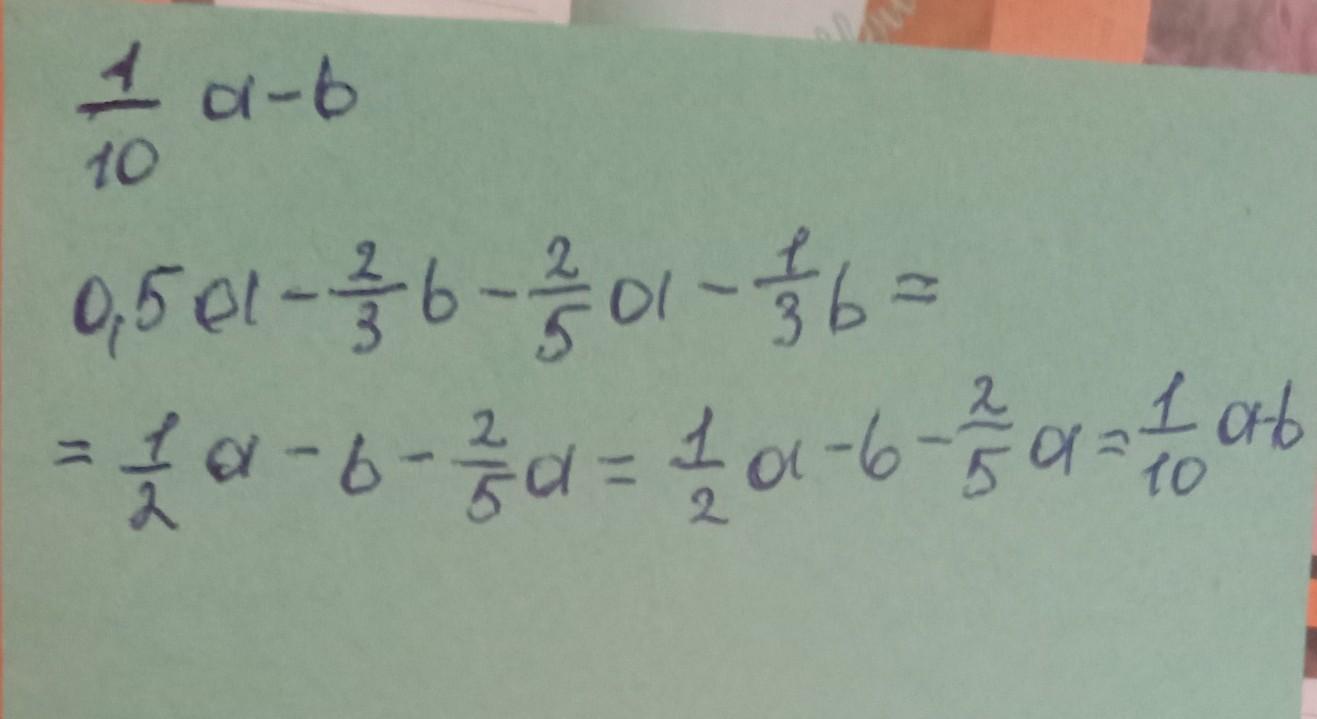 1/10 a-b
0,5a - 2/3 b - 2/5 a - 1/3 b =
= 1/2 a - b - 2/5 a = 1/2 a - b - 2/5 a = 1/10 a-b